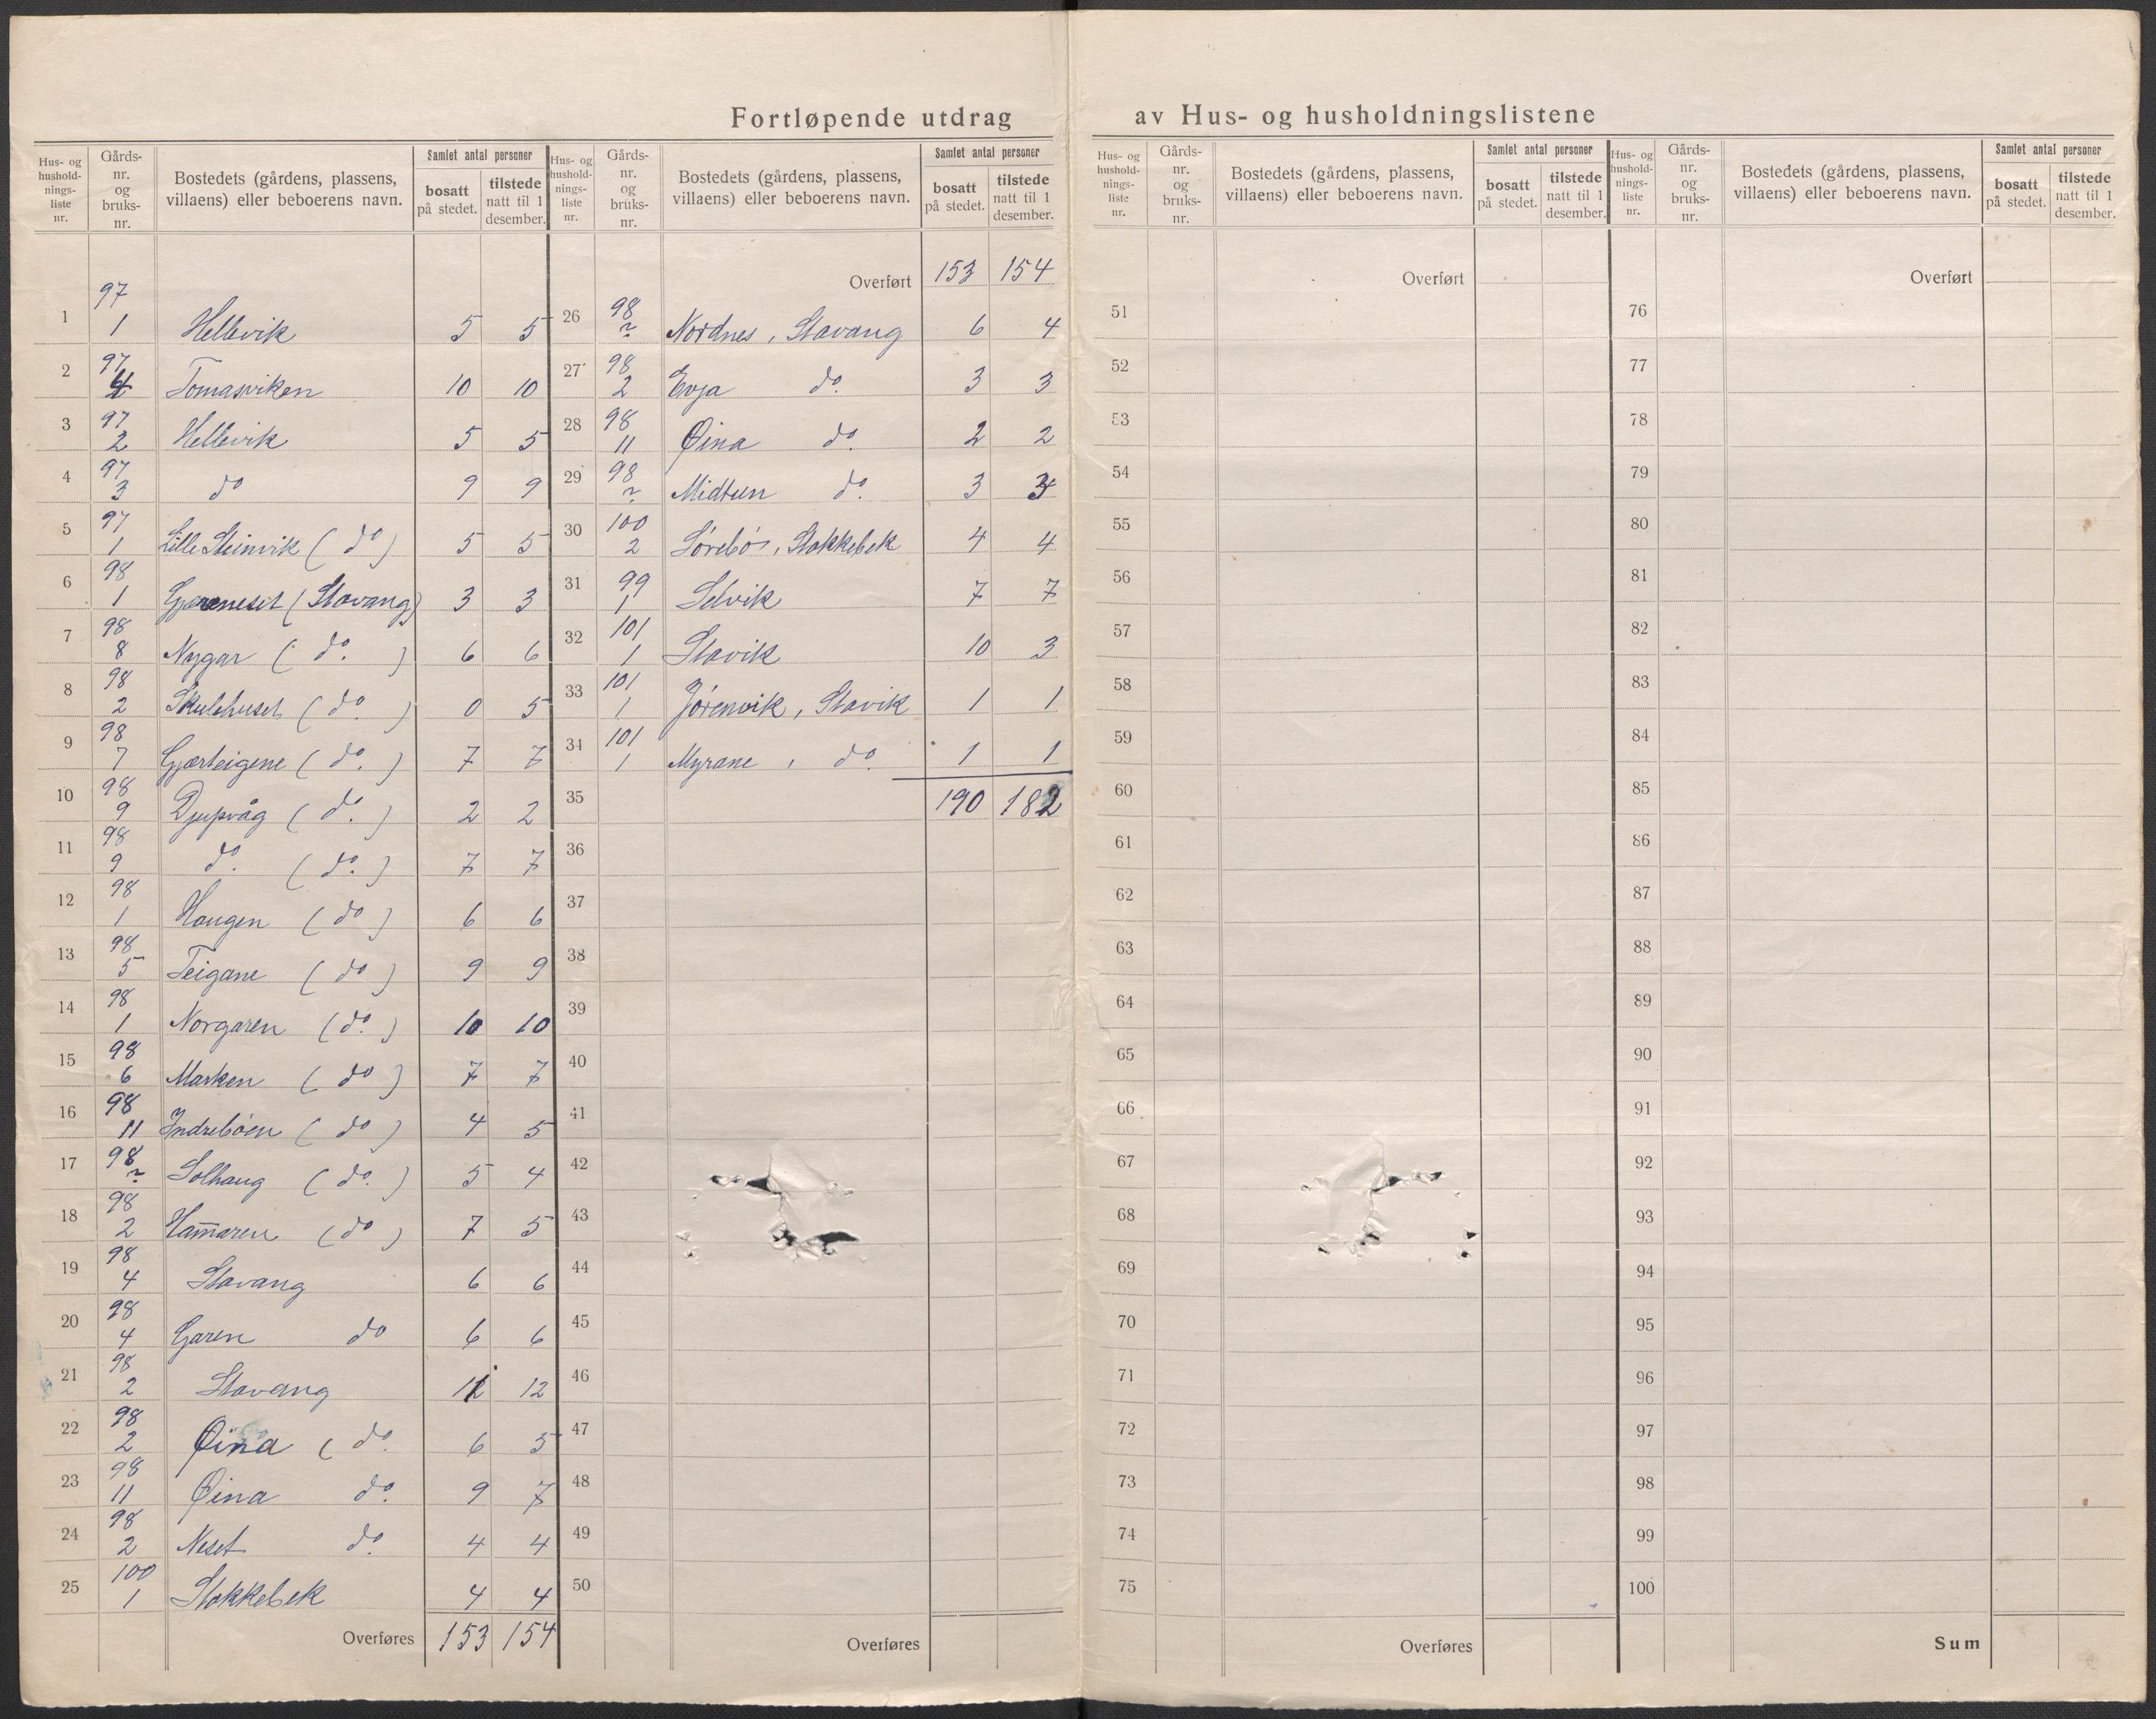 Fortløpende utdrag av Hus- og husholdningslistene
Hus- og hushold-nings-liste nr. Gårds-nr. og bruks-nr. Bostedets (gårdens, plassens, villaens) eller beboerens navn. Samlet antal personer bosatt på stedet. tilstede natt til 1 desember.
1 97 1 Hellevik 5 5
2 97 4 Tomasviken 10 10
3 97 2 Hellevik 5 5
4 97 3 do 9 9
5 97 1 Lille Steinvik (do) 5 5
6 98 1 (Stavang) 3 3
7 98 8 Nygar (do.) 6 6
8 98 2 Skulehuset (do.) 0 5
9 98 7 Gjærteigene (do.) 7 7
10 98 9 Djupvåg (do.) 2 2
11 98 9 do. (do.) 7 7
12 98 1 Haugen (do) 6 6
13 98 5 Teigane (do) 9 9
14 98 1 Norgaren (do.) 10 10
15 98 6 Marken (do) 7 7
16 98 11 Indrebøen (do) 4 5
17 98 ? Solhaug (do.) 5 4
18 98 2 Ham̄aren (do) 7 5
19 98 4 Stavang 6 6
20 98 4 Garen do 6 6
21 98 2 Stavang 12
22 98 2 Øina (do. 6 5
23 98 11 Øina do. 9 7
24 98 2 Neset do. 4 4
25 100 1 Stokkebek 4 4
Overføres 153 154
Hus- og hushold-nings-liste nr. Gårds-nr. og bruks-nr. Bostedets (gårdens, plassens, villaens) eller beboerens navn. Samlet antal personer bosatt på stedet. tilstede natt til 1 desember.
Overført 153 154
26 98 ? Nordnes, Stavang 6 4
27 98 2 Evja do. 3 3
28 98 11 Øina do. 2 2
29 98 ? Midtun do. 3 3
30 100 2 Sørebø, Stokkebek 4 4
31 99 1 Selvik 7 7
32 101 1 Stavik 10 3
33 101 1 Jørenvik, Stavik 1 1
34 101 1 Myrane, do. 1 1
35 190 182
36
37
38
39
40
41
42
43
44
45
46
47
48
49
50
Overføres
Hus- og hushold-nings-liste nr. Gårds-nr. og bruks-nr. Bostedets (gårdens, plassens, villaens) eller beboerens navn. Samlet antal personer bosatt på stedet. tilstede natt til 1 desember.
Overført
51
52
53
54
55
56
57
58
59
60
61
62
63
64
65
66
67
68
69
70
71
72
73
74
75
Overføres
Hus- og hushold-nings-liste nr. Gårds-nr. og bruks-nr. Bostedets (gårdens, plassens, villaens) eller beboerens navn. Samlet antal personer bosatt på stedet. tilstede natt til 1 desember.
Overført
76
77
78
79
80
81
82
83
84
85
86
87
88
89
90
91
92
93
94
95
96
97
98
99
100
Sum